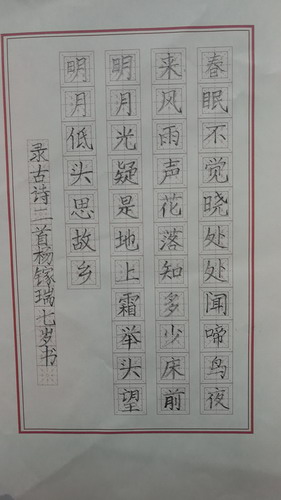 春眠不觉晓处处闻啼鸟夜
来风雨声花落知多少床前
明月光疑是地上霜举头望
明月低头思故乡
录古诗二首杨镓瑞七岁书